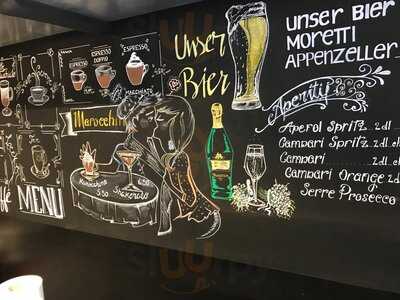 ESPRESSO
ESPRESSO
DOPPIO
ESPRESSO
MACCHIATO
Marocchin
Marocchino
5.50
Shakerato
6.50
MENU
Unser
Bier
UNSER BIER
MORETTI
APPENZELLER
Aperitif
Aperol Spritz 2dl
Campari Spritz 2dl
Campari 2dl
Campari Orange 2d
Serre Prosecco